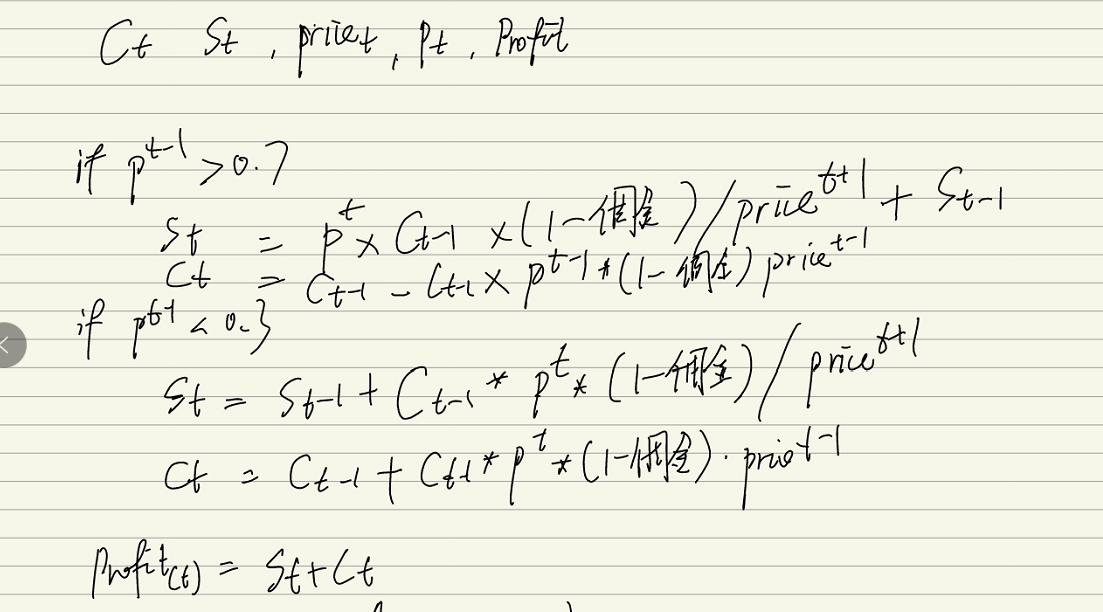 Ct St , pricet , Pt , Profit
if p^t-1 > 0.7
St = p^t × Ct-1 × (1-佣金) / price^t+1 + St-1
Ct = Ct-1 - Ct-1 × p^t-1 * (1-佣金) price^t-1
if p^t-1 < 0.3
St = St-1 + Ct-1 * p^t * (1-佣金) / price^t+1
Ct = Ct-1 + Ct-1 * p^t * (1-佣金) · price^t-1
Profit(t) = St + Ct